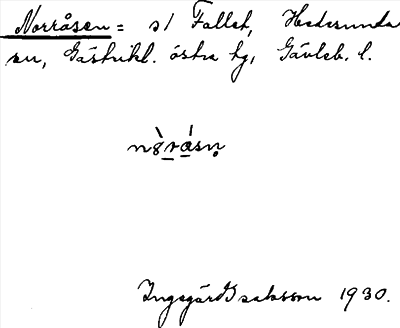 Norråsen = s/ Fallet, Hedesunda
sn, Gästrikl. östra tg, Gävleb. l.
Ingegärd Isaksson 1930.